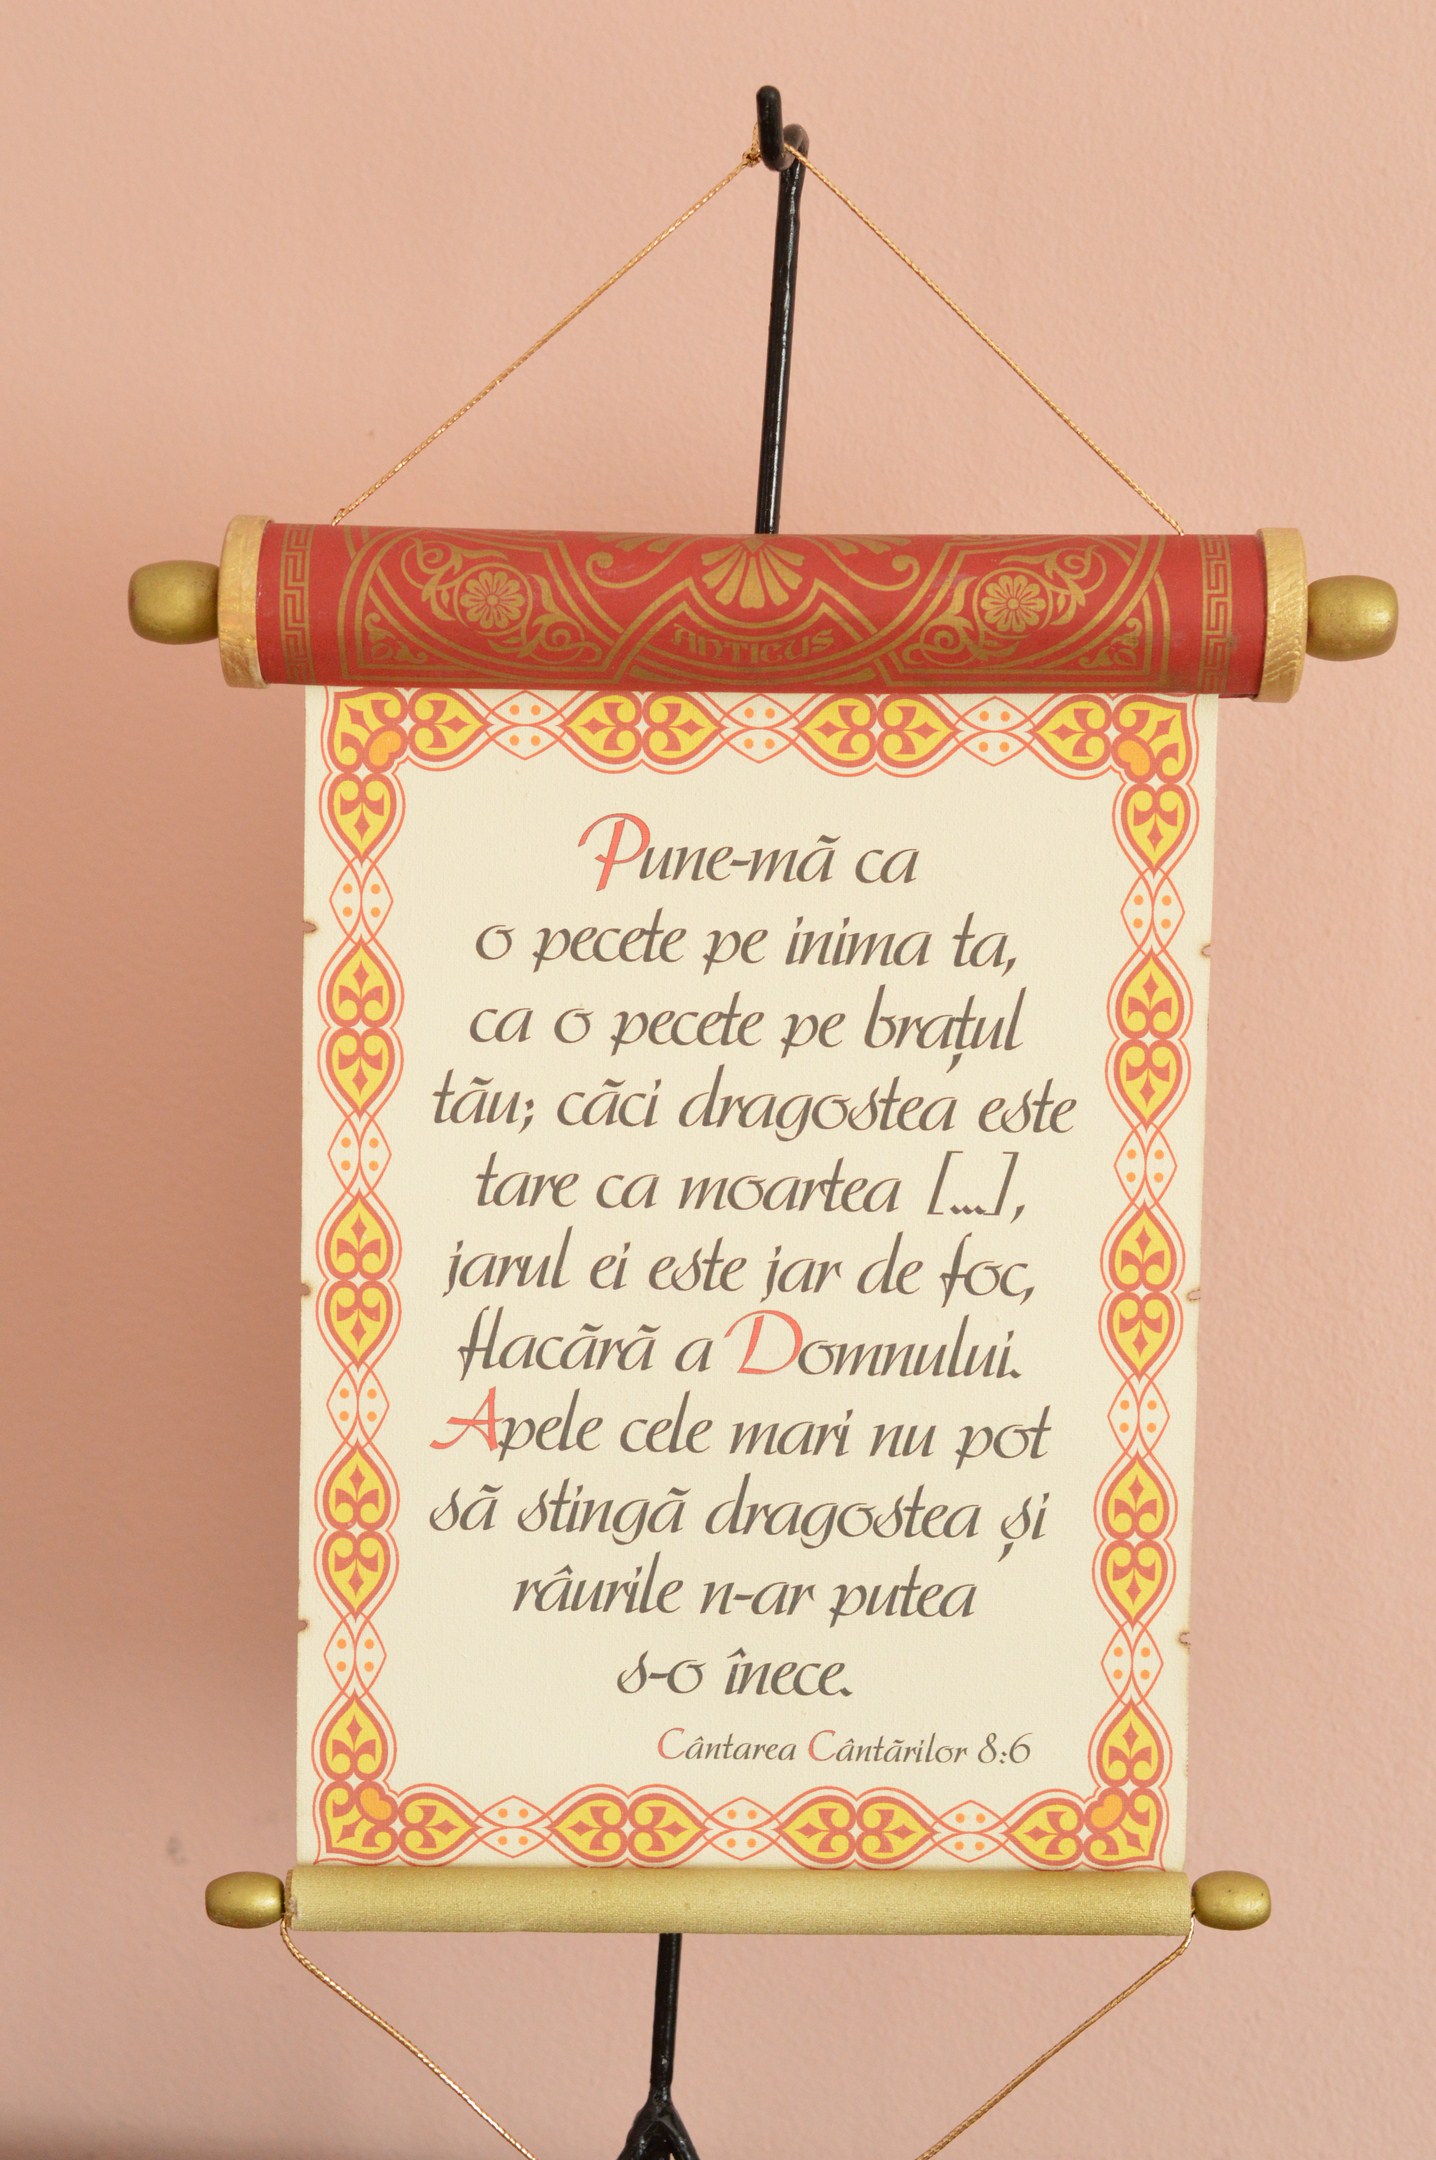 ANTICUS
Pune-mã ca
o pecete pe inima ta,
ca o pecete pe brațul
tãu; cãci dragostea este
tare ca moartea [...],
jarul ei este jar de foc,
flacãrã a Domnului.
Apele cele mari nu pot
sã stingã dragostea și
râurile n-ar putea
s-o înece.
Cântarea Cântãrilor 8:6